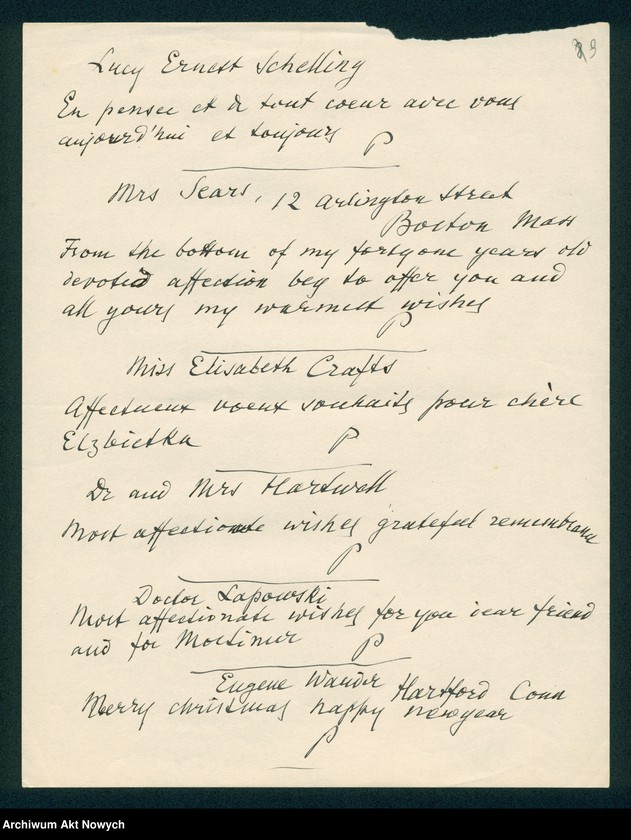 39
Lucy Ernest Schelling
En pensee et de tout coeur avec vous
aujourd'hui et toujours
P
Mrs Sears, 12 Arlington Street
Boston Mass
From the bottom of my fortyone years old
devoted affection beg to offer you and
all yours my warmest wishes
P
Miss Elisabeth Crafts
Affectueux voeux souhaits pour chère
Elzbietka
P
Dr and Mrs Hartwell
Most affectionate wishes grateful remembrance
P
Doctor Lapowski
Most affectionate wishes for you dear friend
and for Mortimer
P
Eugene Wander Hartford Conn
Merry christmas happy newyear
P
Archiwum Akt Nowych